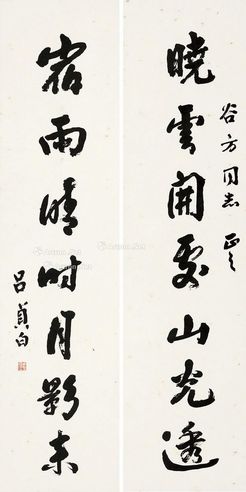 谷方同志正之
曉雲開處山光透
宿雨晴時月影來
呂貞白